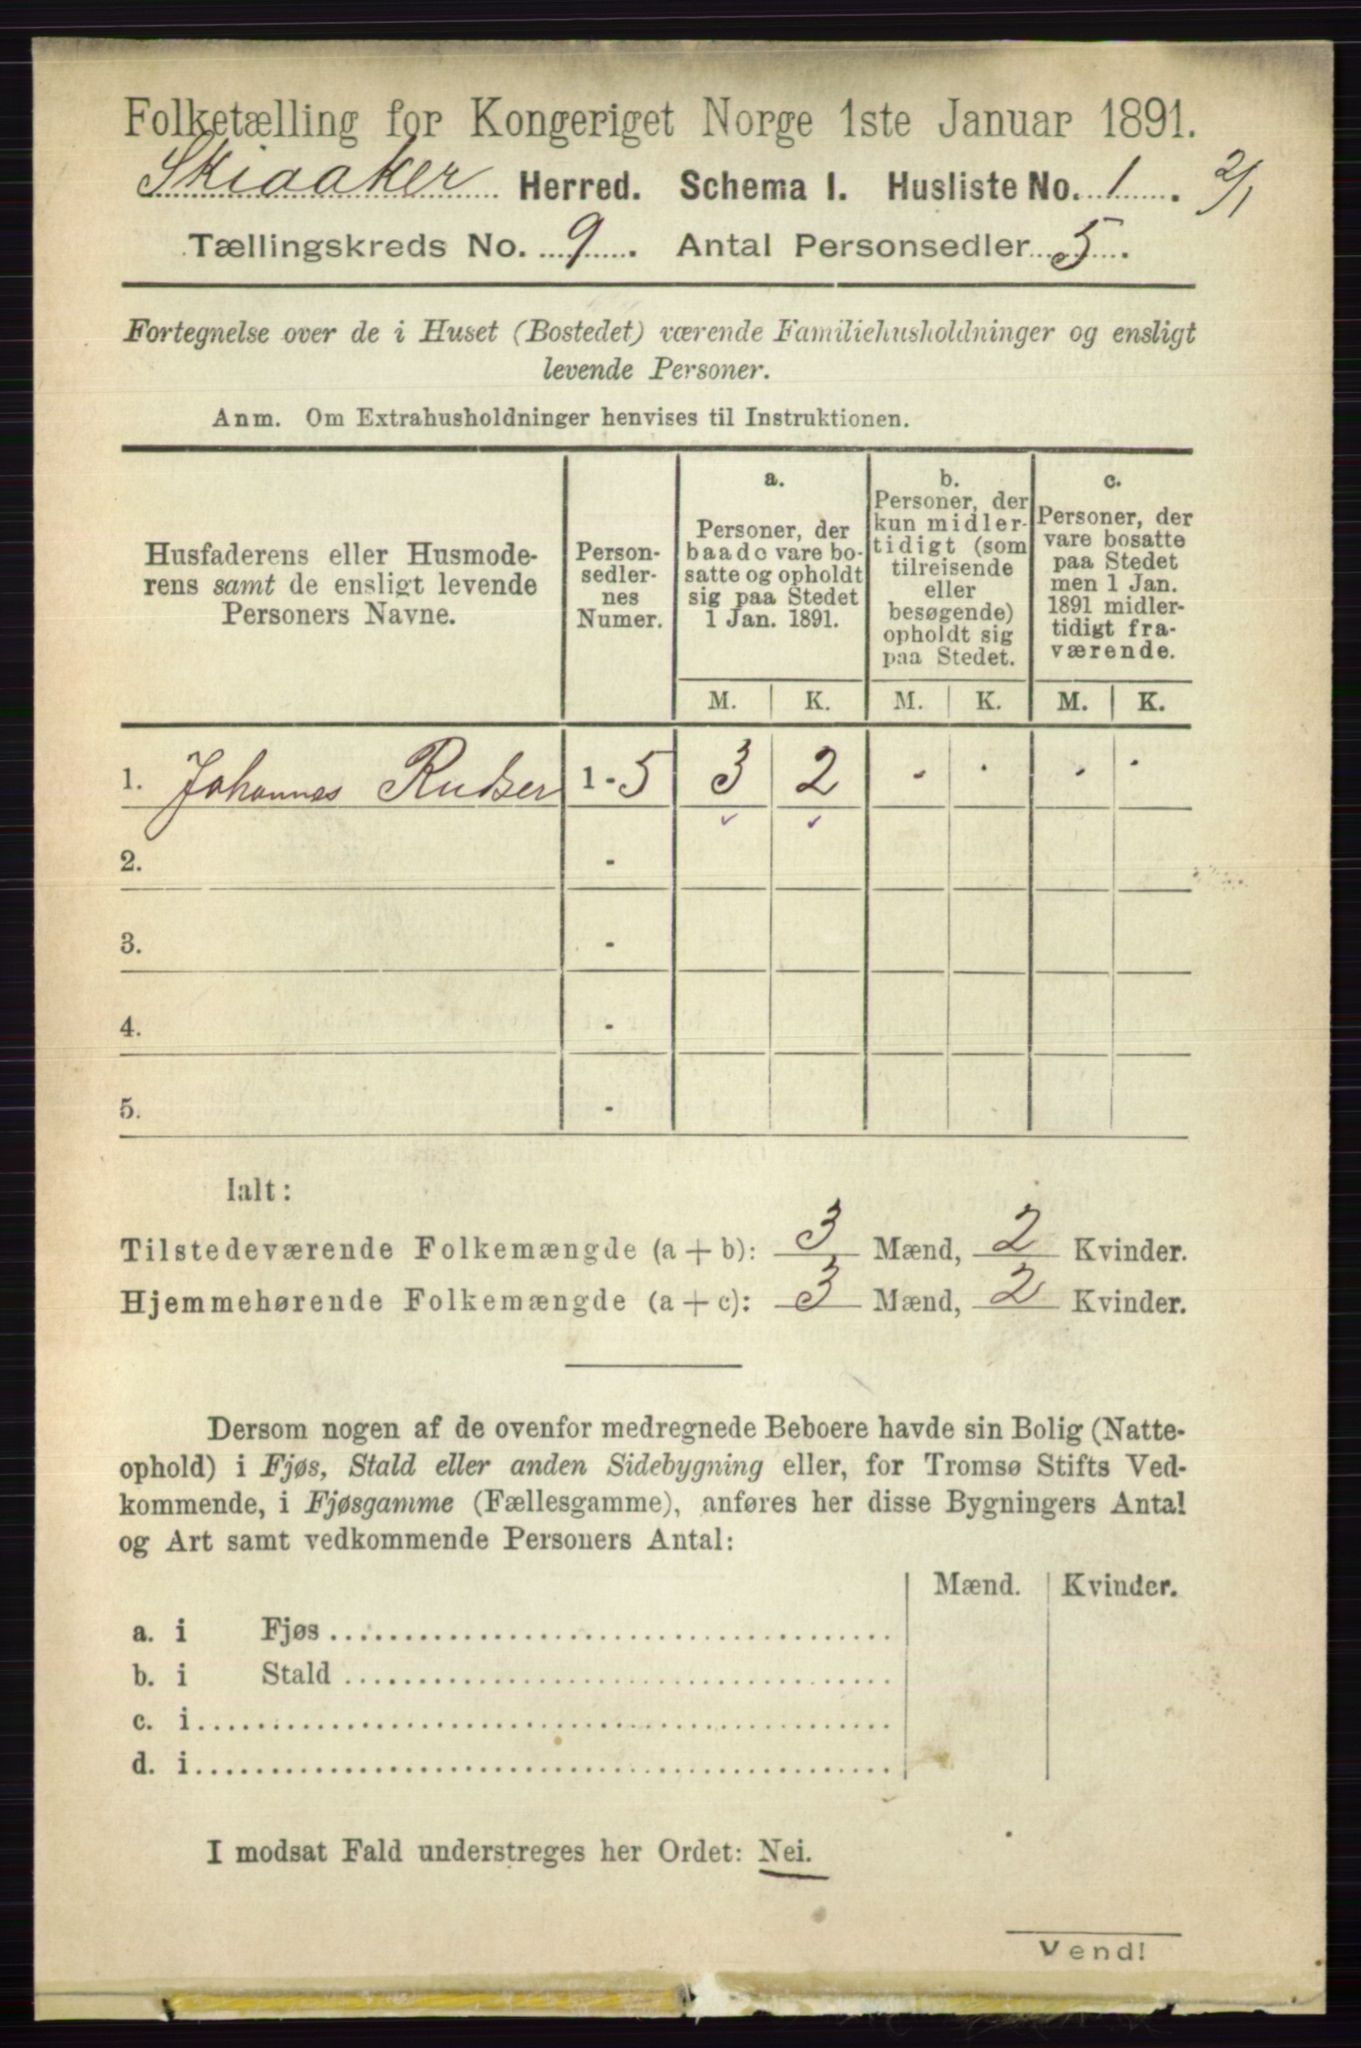 Folketælling for Kongeriget Norge 1ste Januar 1891.
Skiaaker Herred. Schema I. Husliste No. 1. 2/1
Tællingskreds No. 9. Antal Personsedler 5.
Fortegnelse over de i Huset (Bostedet) værende Familiehusholdninger og ensligt
levende Personer.
Anm. Om Extrahusholdninger henvises til Instruktionen.
Husfaderens eller Husmode-
rens samt de ensligt levende
Personers Navne.
Person-
sedler-
nes
Numer.
a.
Personer, der
baade vare bo-
satte og opholdt
sig paa Stedet
1 Jan. 1891.
b.
Personer, der
kun midler-
tidigt (som
tilreisende
eller
besøgende)
opholdt sig
paa Stedet.
c.
Personer, der
vare bosatte
paa Stedet
men 1 Jan.
1891 midler-
tidigt fra-
værende.
M. K. M. K. M. K.
1. Johannes Rudser 1 - 5 3 2 - - - -
2. -
3. -
4. -
5. -
Ialt:
Tilstedeværende Folkemængde (a + b): 3 Mænd, 2 Kvinder.
Hjemmehørende Folkemængde (a + c): 3 Mænd, 2 Kvinder.
Dersom nogen af de ovenfor medregnede Beboere havde sin Bolig (Natte-
ophold) i Fjøs, Stald eller anden Sidebygning eller, for Tromsø Stifts Ved-
kommende, i Fjøsgamme (Fællesgamme), anføres her disse Bygningers Antal
og Art samt vedkommende Personers Antal:
Mænd. Kvinder.
a. i Fjøs
b. i Stald
c. i
d. i
I modsat Fald understreges her Ordet: Nei.
Vend!